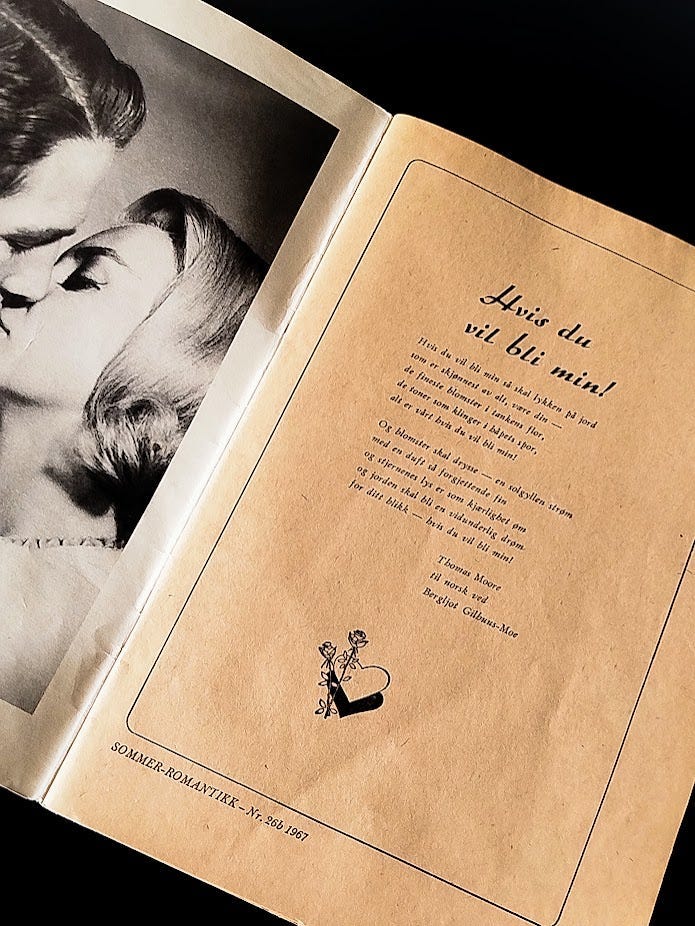 Hvis du
vil bli min!
Hvis du vil bli min så skal lykken på jord
som er skjønnest av alt, være din —
de fineste blomster i tankens flor,
de toner som klinger i håpets spor,
alt er vårt hvis du vil bli min!
Og blomster skal drysse — en solgyllen strøm
med en duft så forgjettende fin
og stjernenes lys er som kjærlighet øm
og jorden skal bli en vidunderlig drøm
for ditt blikk — hvis du vil bli min!
Thomas Moore
til norsk ved
Bergljot Gilhuus-Moe
SOMMER-ROMANTIKK – Nr. 26b 1967